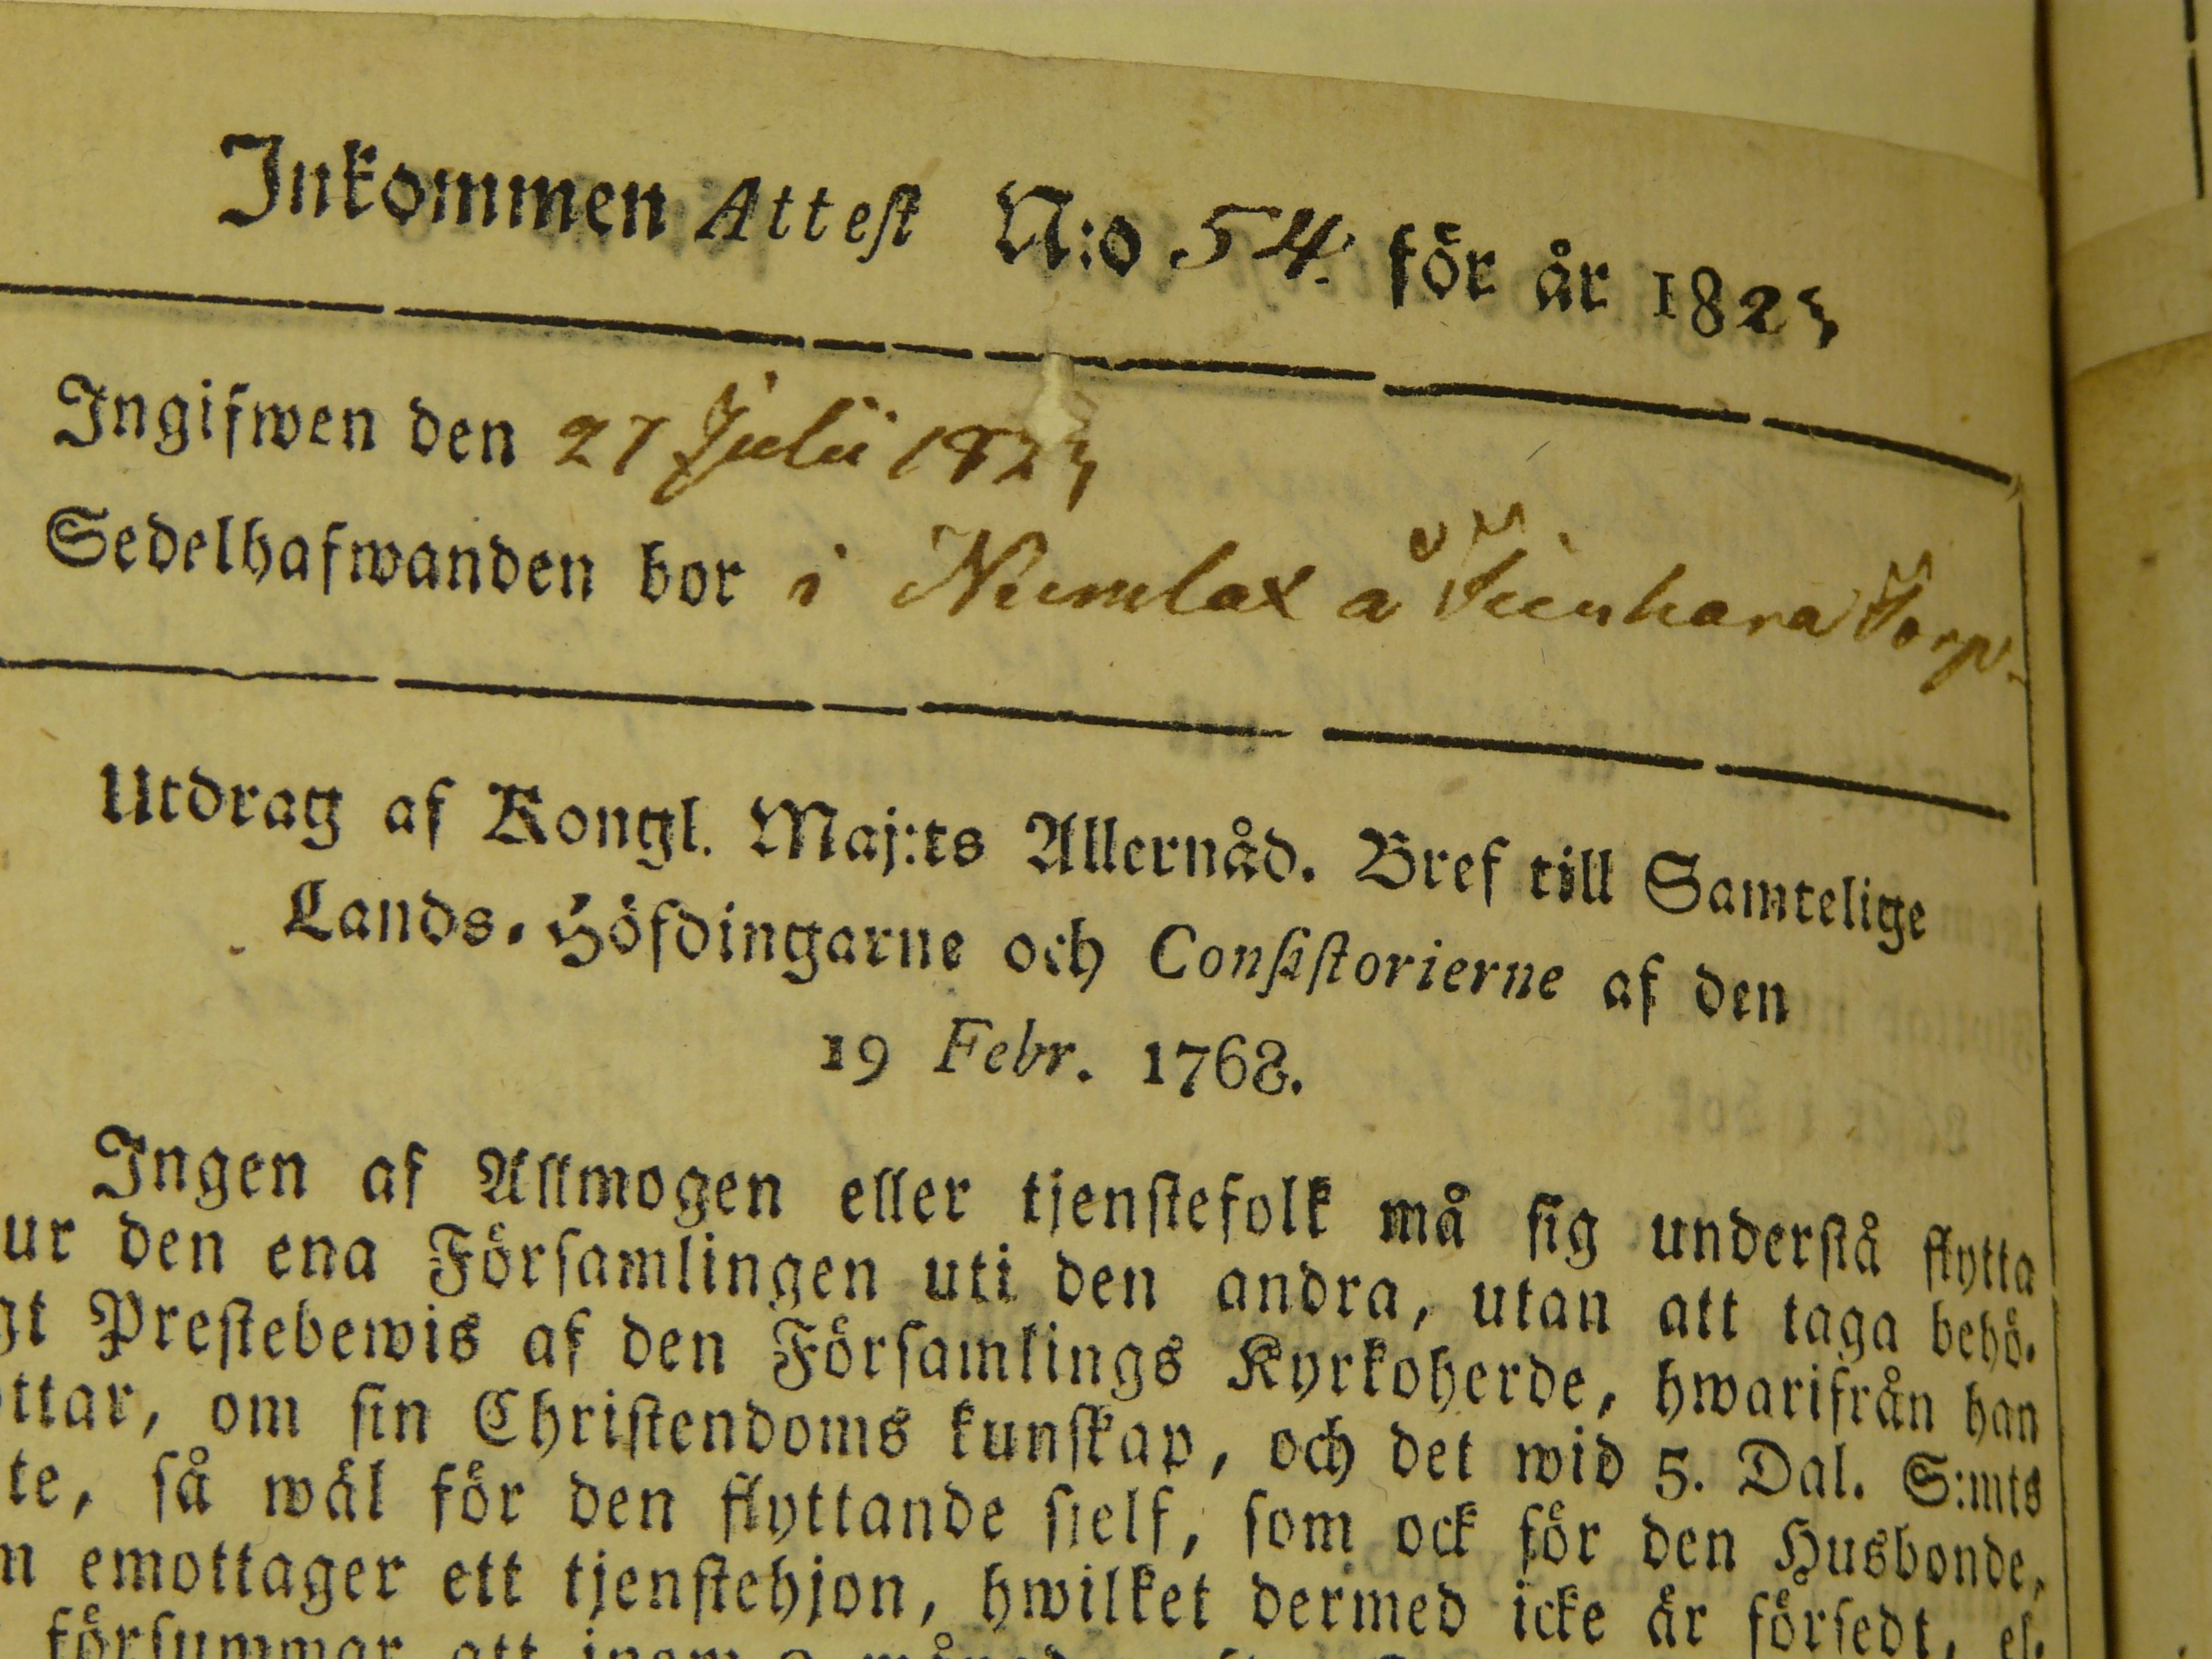 Inkommen Attest N:o 54. för år 1823
Ingifwen den 27 Julii 1823
Sedelhafwanden bor i Numlax å Tienhara Torp.
Utdrag af Kongl. Maj:ts Allernåd. Bref till Samtelige
Lands-Höfdingarne och Consistorierne af den
19 Febr. 1768.
Ingen af Allmogen eller tjenstefolk må sig understå flytta
ur den ena Församlingen uti den andra, utan att taga behö-
gt Prestebewis af den Församlings Kyrkoherde, hwarifrån han
ttar, om sin Christendoms kunskap, och det wid 5. Dal. S:mts
te, så wäl för den flyttande sjelf, som ock för den Husbonde,
n emottager ett tjenstehjon, hwilket dermed icke är försedt, el-
försummar att inom